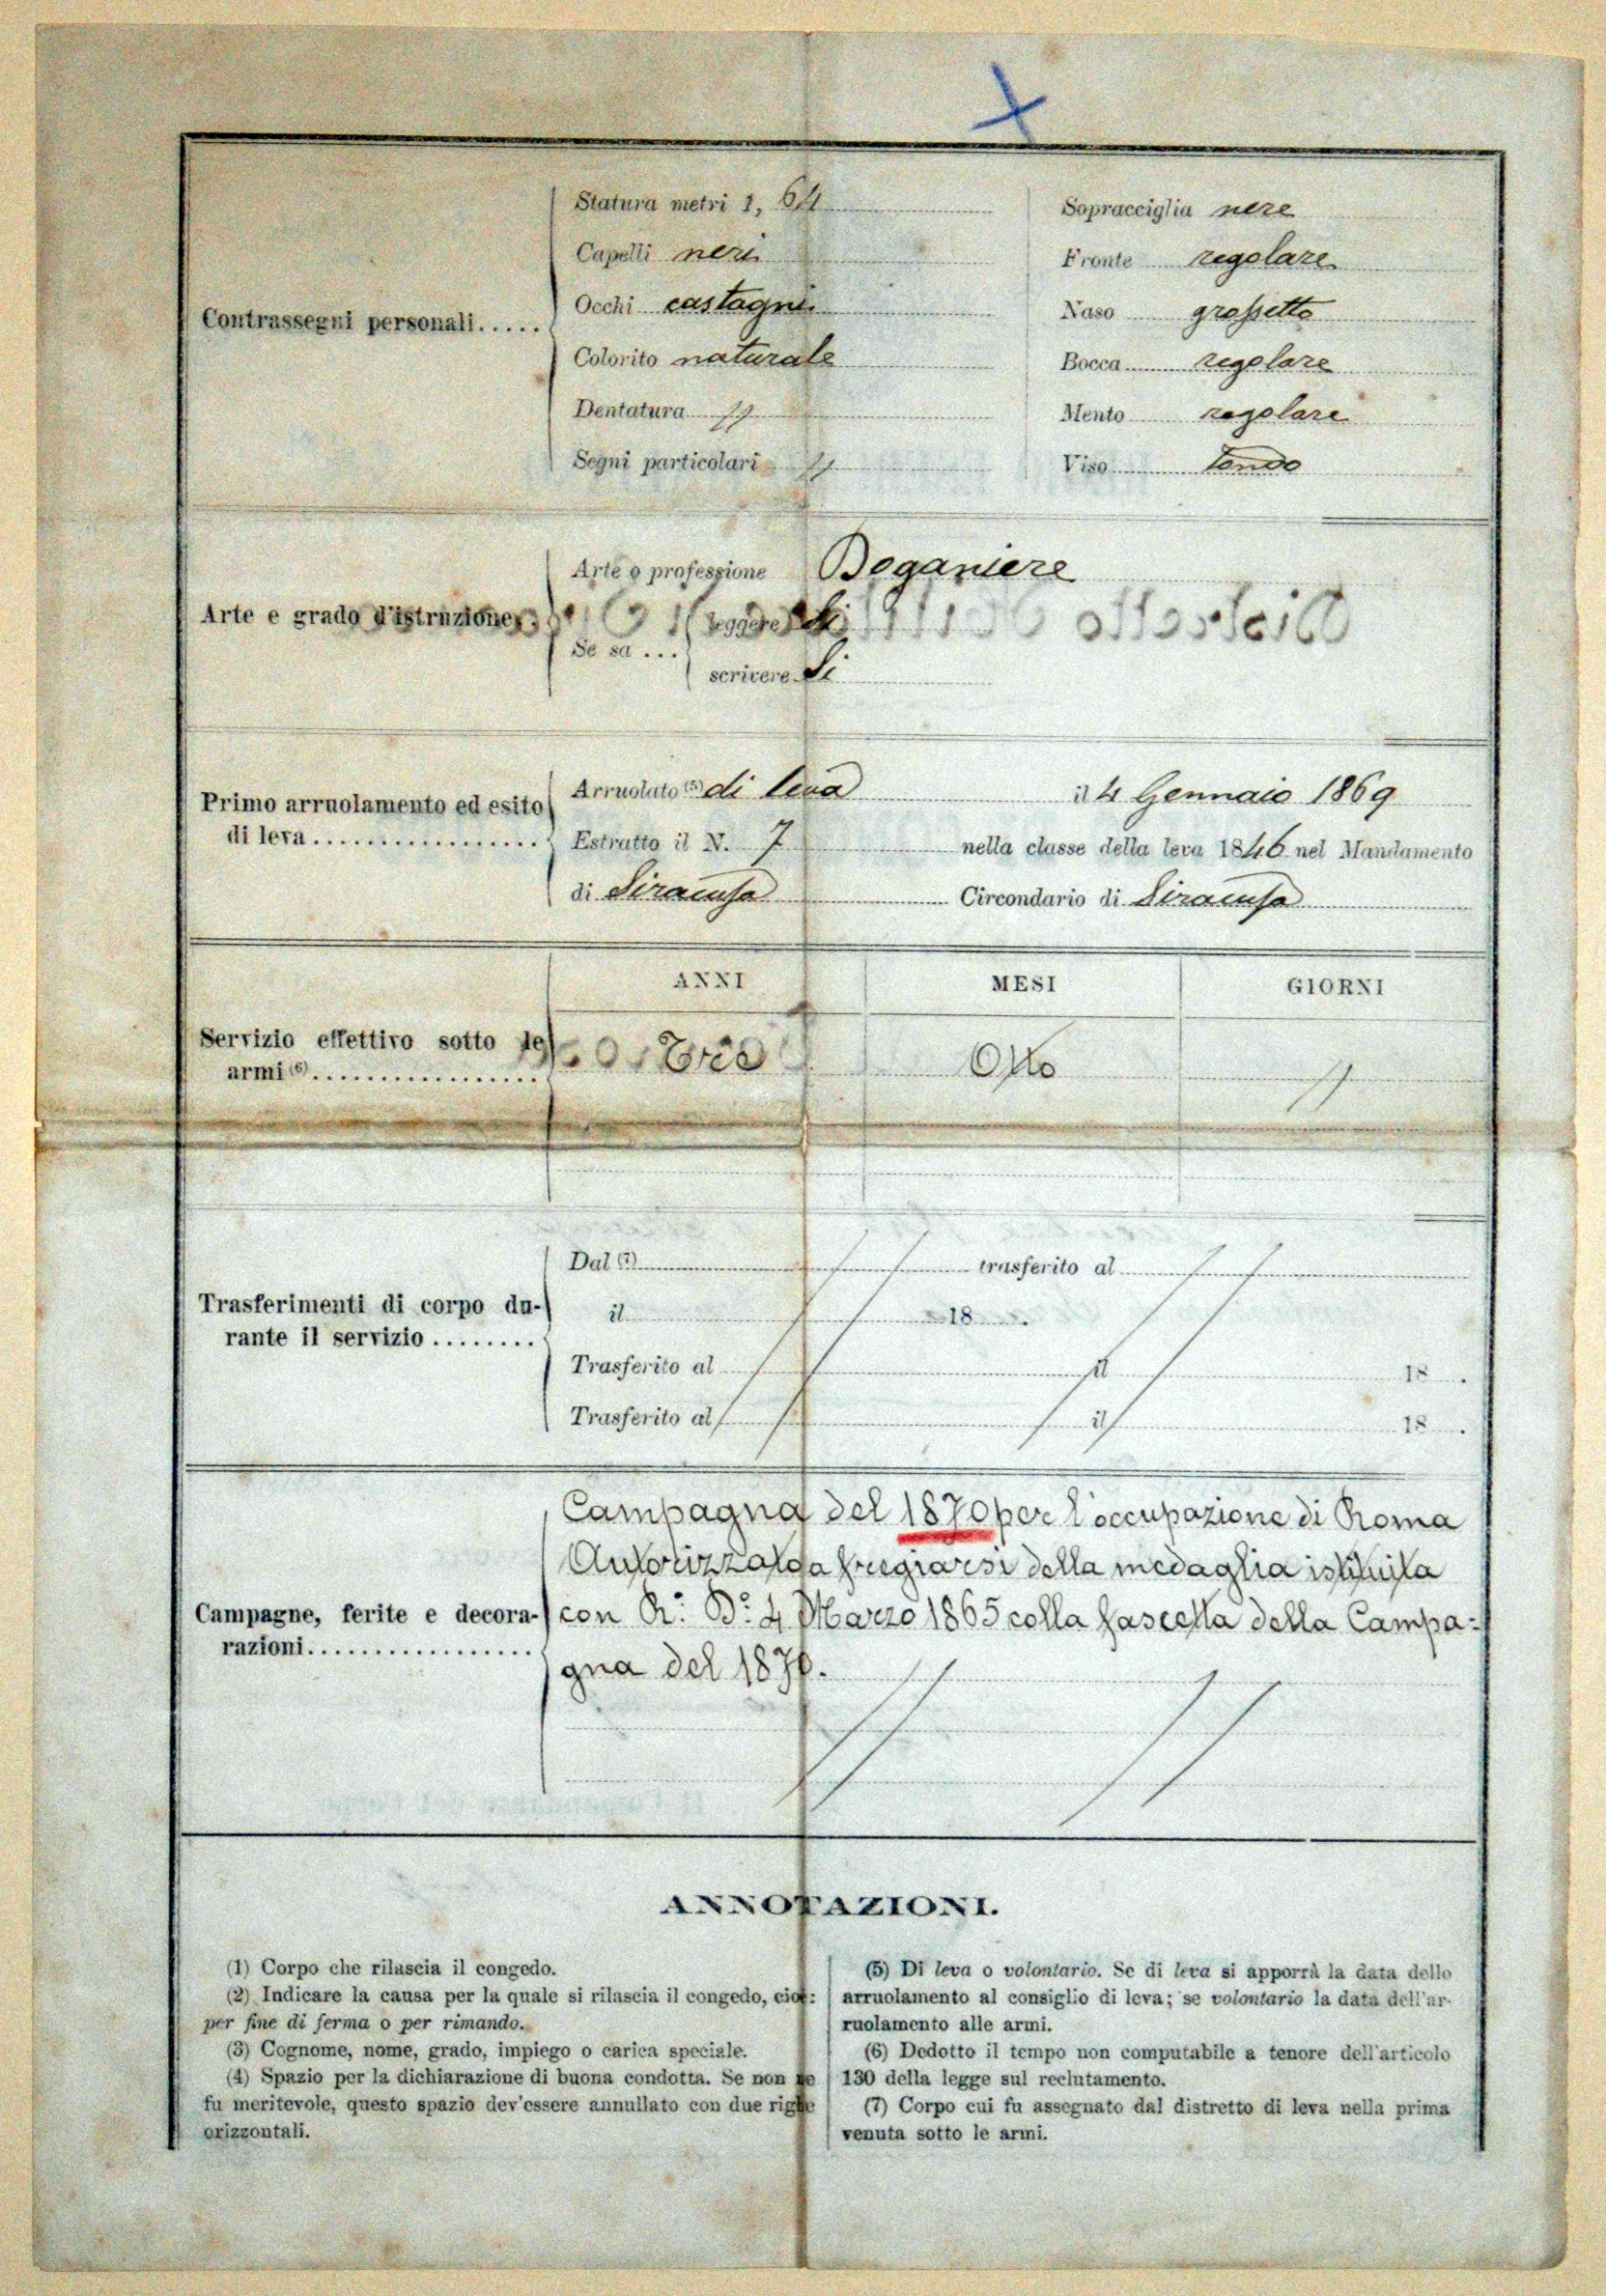 Statura metri 1, 64
Sopracciglia nere
Capelli neri
Fronte regolare
Occhi castagni
Naso grossetto
Contrassegni personali.....
Colorito naturale
Bocca regolare
Dentatura "
Mento regolare
Segni particolari "
Viso tondo
Arte o professione
Arte e grado d'istruzione
leggere Si
Se sa ...
scrivere Si
Arruolato (5) di leva il 4 Gennaio 1869
Primo arruolamento ed esito
di leva
Estratto il N. 7 nella classe della leva 1846 nel Mandamento
di Siracusa Circondario di Siracusa
ANNI MESI GIORNI
Servizio effettivo sotto le
armi (6) Tre Otto "
Dal (7) trasferito al
Trasferimenti di corpo du-
rante il servizio ........
il 18 .
Trasferito al il 18 .
Trasferito al il 18 .
Campagna del 1870 per l'occupazione di Roma
Autorizzato a fregiarsi della medaglia istituita
Campagne, ferite e decora-
razioni
con R. D. 4 Marzo 1865 colla fascetta della Campa=
gna del 1870.
ANNOTAZIONI.
(1) Corpo che rilascia il congedo.
(2) Indicare la causa per la quale si rilascia il congedo, cioè:
per fine di ferma o per rimando.
(3) Cognome, nome, grado, impiego o carica speciale.
(4) Spazio per la dichiarazione di buona condotta. Se non ne
fu meritevole, questo spazio dev'essere annullato con due righe
orizzontali.
(5) Di leva o volontario. Se di leva si apporrà la data dello
arruolamento al consiglio di leva; se volontario la data dell'ar-
ruolamento alle armi.
(6) Dedotto il tempo non computabile a tenore dell'articolo
130 della legge sul reclutamento.
(7) Corpo cui fu assegnato dal distretto di leva nella prima
venuta sotto le armi.